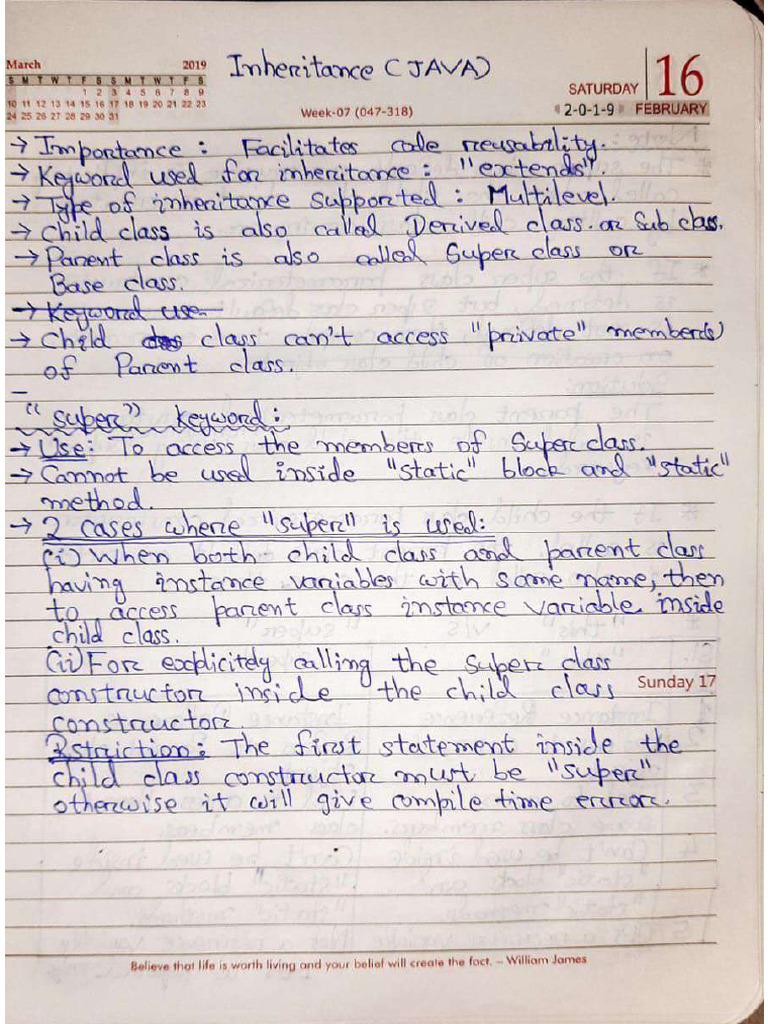 March 2019
S M T W T F S S M T W T F S S M T W T F S
1 2 3 4 5 6 7 8 9
10 11 12 13 14 15 16 17 18 19 20 21 22 23
24 25 26 27 28 29 30 31
Inheritance (JAVA)
Week-07 (047-318)
SATURDAY 16
2-0-1-9 FEBRUARY
→ Importance : Facilitates code reusability.
→ Keyword used for inheritance : "extends".
→ Type of inheritance supported : Multilevel.
→ Child class is also called Derived class. or Sub class.
→ Parent class is also called Super class or
Base class.
→ Keyword use
→ Child class can't access "private" member(s)
of Parent class.
"super" keyword :
→ Use : To access the members of Super class.
→ Cannot be used inside "static" block and "static"
method.
→ 2 cases where "super" is used:
(i) When both child class and parent class
having instance variables with same name, then
to access parent class instance variable inside
child class.
(ii) For explicitely calling the super class
constructor inside the child class
Sunday 17
constructor.
Rstriction : The first statement inside the
child class constructor must be "super"
otherwise it will give compile time error.
Believe that life is worth living and your belief will create the fact. – William James